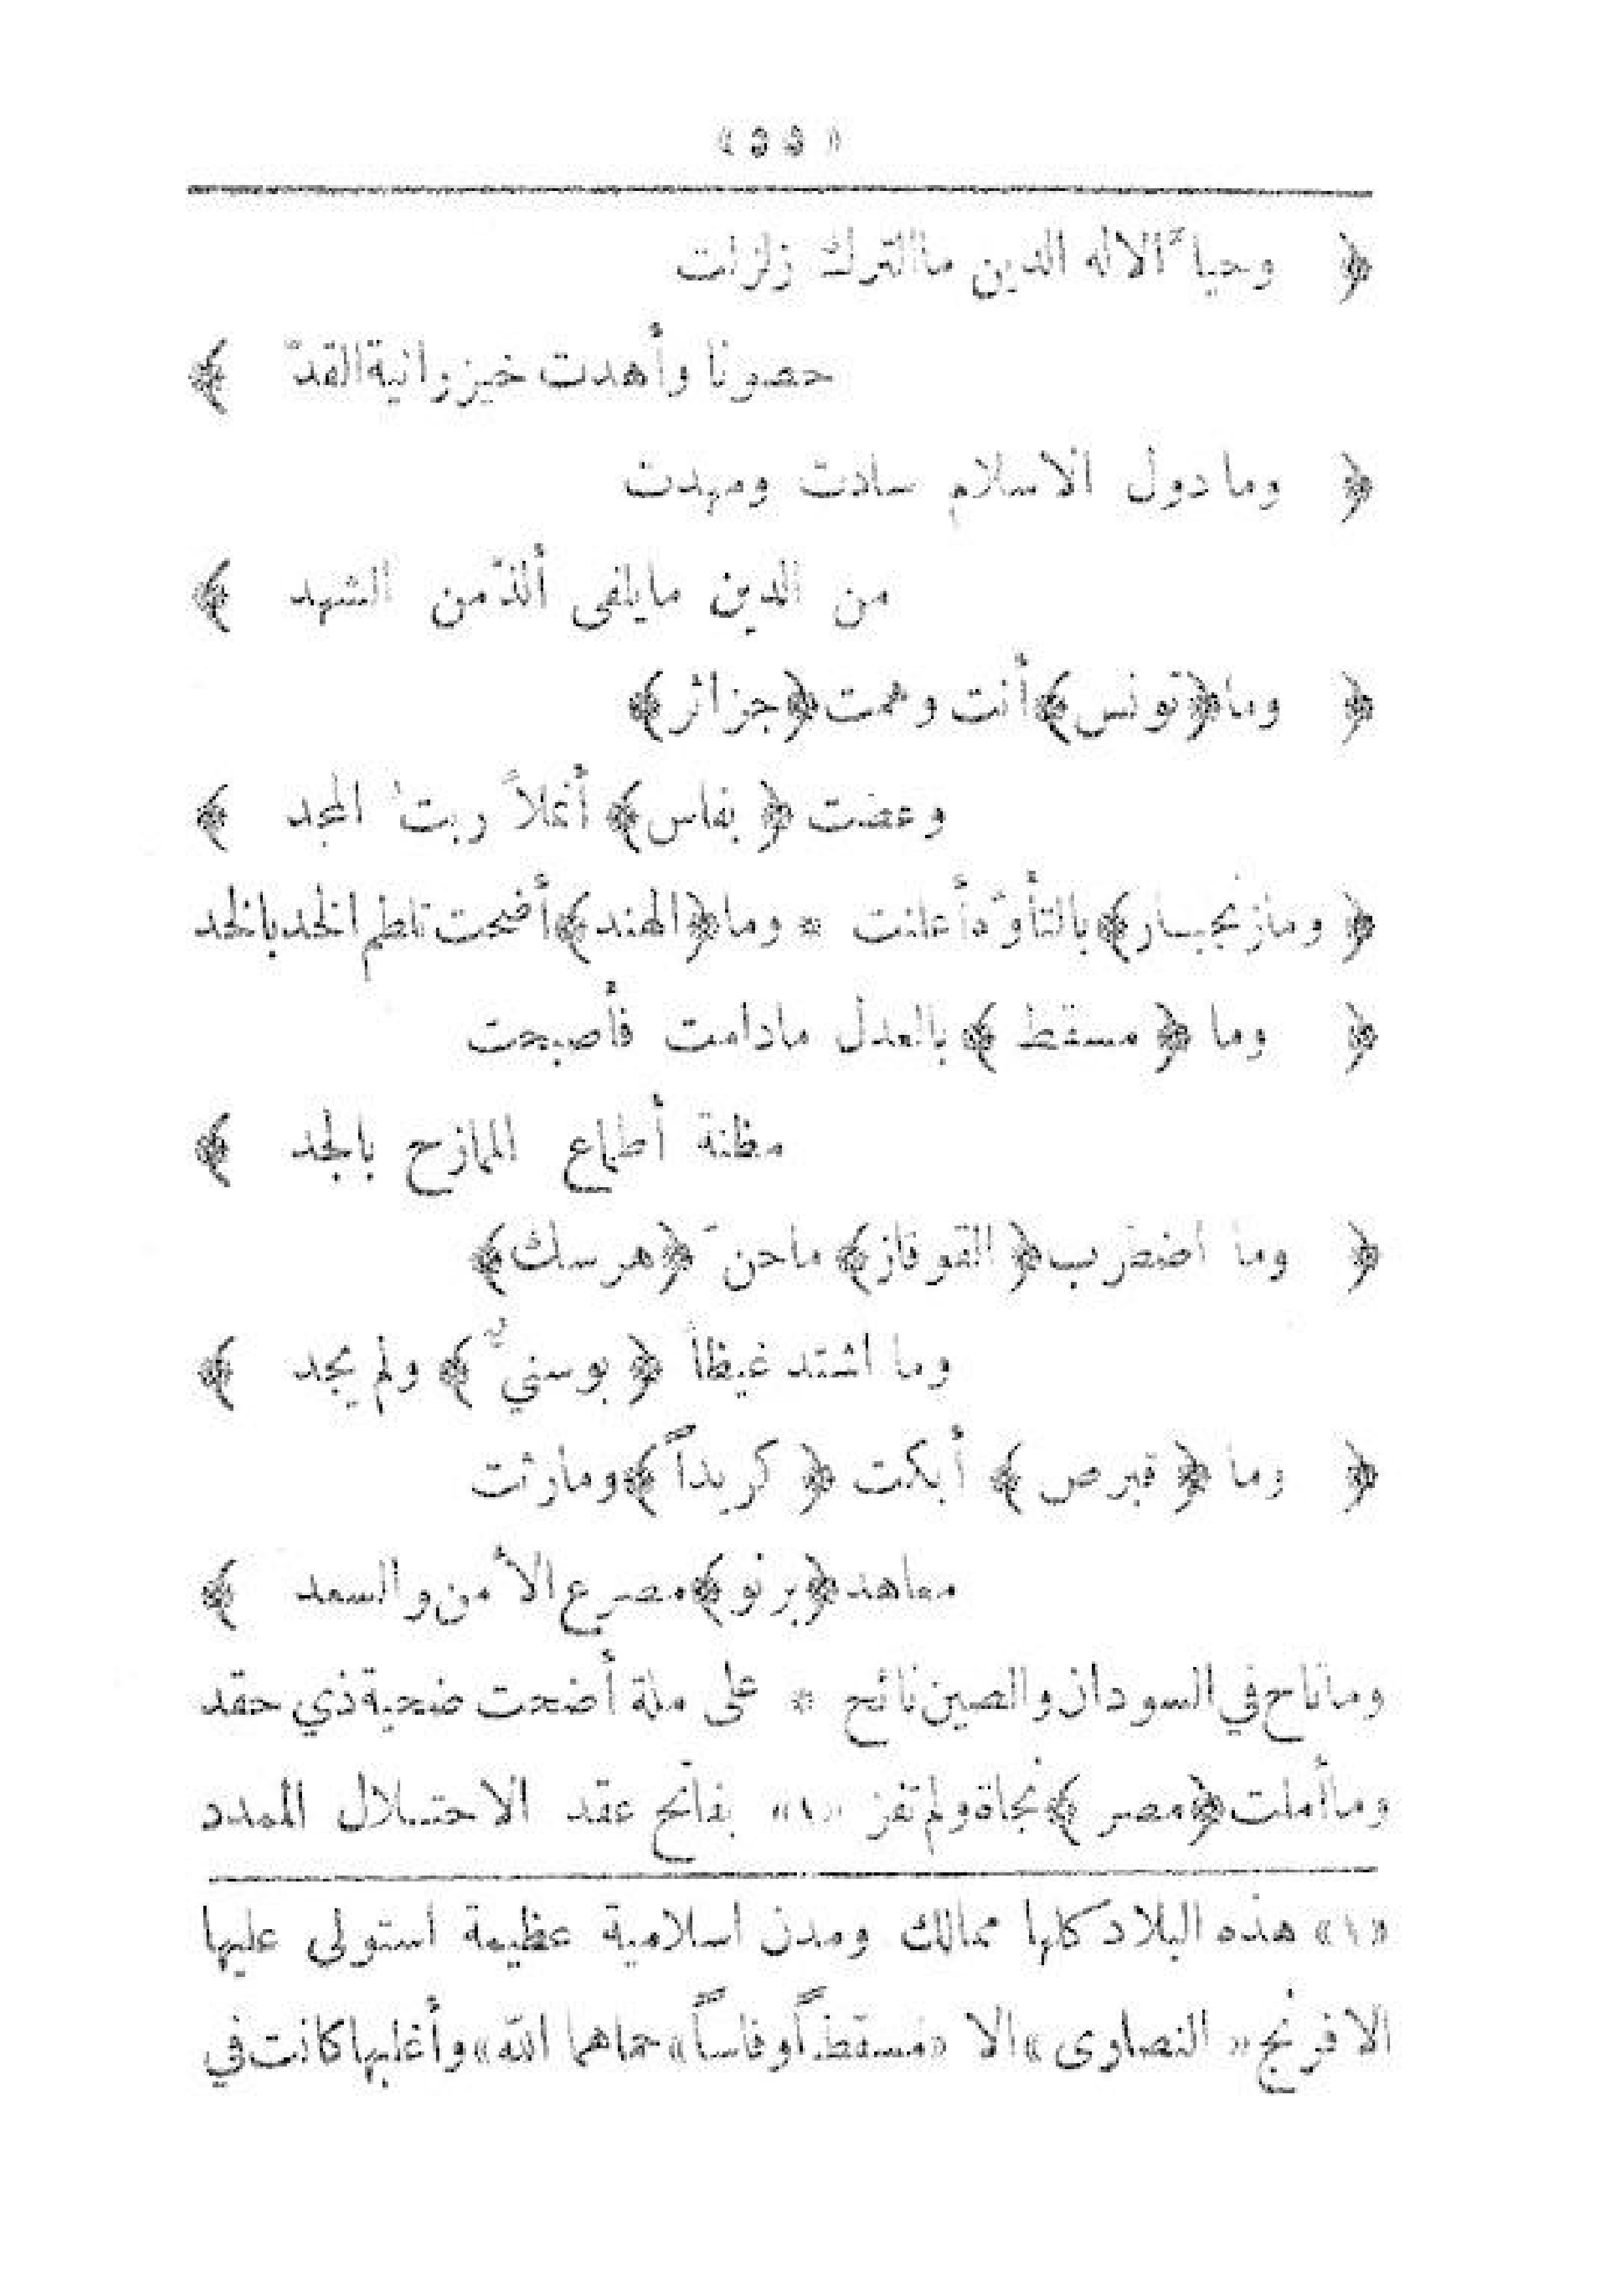 « ٥٥ »
﴿ وحياّ الاله الدين ما الترك زلزلت
حصونا وأهدت خيزرانية القدّ ﴾
﴿ وما دول الاسلام سادت ومهدت
من الدين ما يلفى ألذّ من الشهد ﴾
﴿ وما ﴿تونس﴾ أنت وهمت ﴿جزائر﴾
وعضت ﴿ بفاس﴾ أنملاً ربت المجد ﴾
﴿ وما زنجبار﴾ بالتأوّه أعلنت * وما ﴿الهند﴾ أضحت تلطم الخد بالخد
﴿ وما ﴿ مسقط ﴾ بالعدل مادامت فأصبحت
مظنة أطماع الممازح بالجد ﴾
﴿ وما اضطرب ﴿ القوقاز﴾ ماحنّ ﴿هرسك﴾
وما اشتد غيظاً ﴿ بوسنيّ ﴾ ولم يجد ﴾
﴿ وما ﴿ قبرص ﴾ أبكت ﴿ كريداً ﴾ ومارثت
معاهد ﴿برنو﴾ مصرع الأمن والسعد ﴾
وماناح في السودان والصين نائح * على ملة أضحت ضحية ذي حقد
وما أملت ﴿مصر ﴾ نجاة ولم تفز «١» بفاتح عقد الاحتلال الممدد
«١» هذه البلاد كلها ممالك ومدن اسلامية عظيمة استولى عليها
الافرنج « النصارى » الا «مسقطاً وفاساً» حماهما الله» وأغلبها كانت في